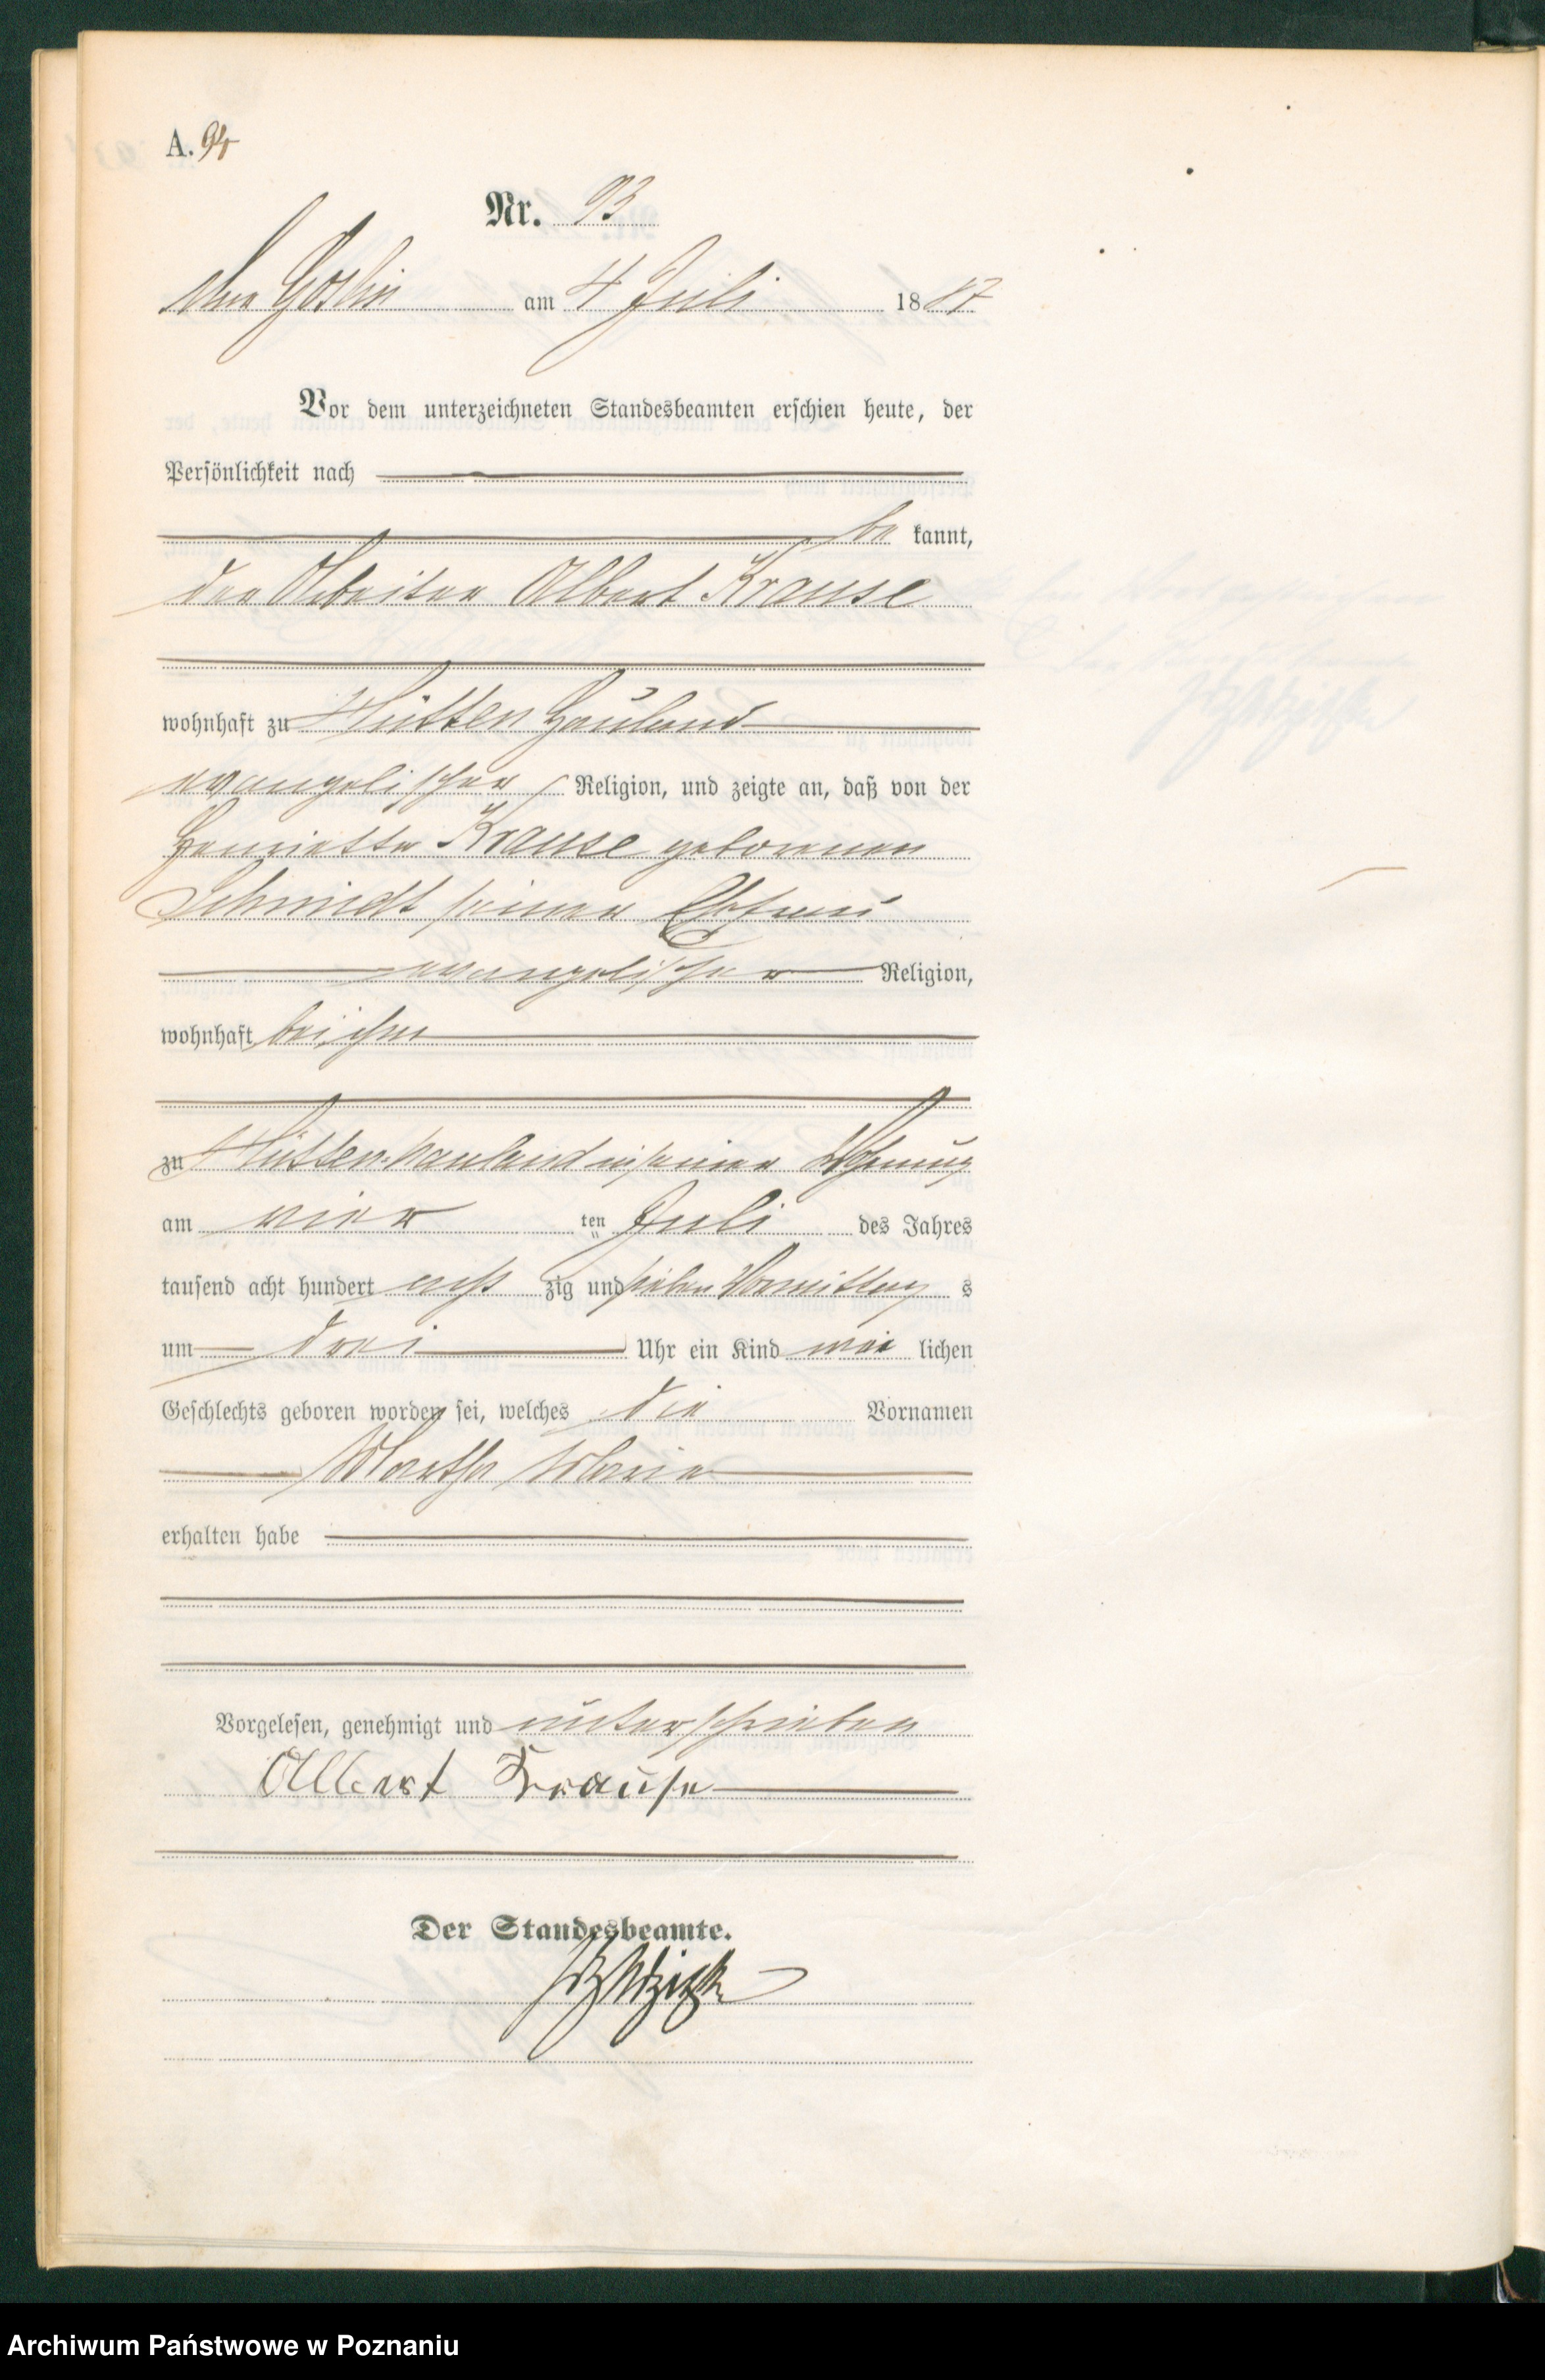 A. 94
Nr. 93
Mur Goslin am 4 Juli 1887
Vor dem unterzeichneten Standesbeamten erschien heute, der
Persönlichkeit nach
be kannt,
der Arbeiter Albert Krause
wohnhaft zu Hütten Hauland
evangelischer Religion, und zeigte an, daß von der
Henriette Krause geborenen
Schmidt seiner Ehefrau
evangelischer Religion,
wohnhaft bei ihm
zu Hütten-hauland in seiner Wohnung
am vier ten Juli des Jahres
tausend acht hundert acht zig und sieben Vormittag s
um drei Uhr ein Kind lichen
Geschlechts geboren worden sei, welches die Vornamen
Martha Maria
erhalten habe
Vorgelesen, genehmigt und unterschrieben
Albert Krause
Der Standesbeamte.
Archiwum Państwowe w Poznaniu